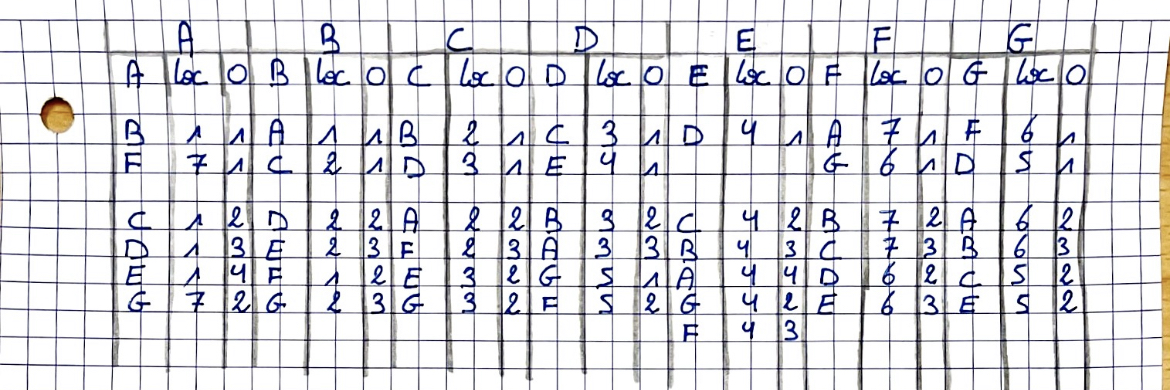 A B C D E F G
A loc 0 B loc 0 C loc 0 D loc 0 E loc 0 F loc 0 G loc 0
B 1 1 A 1 1 B 2 1 C 3 1 D 4 1 A 7 1 F 6 1
F 7 1 C 2 1 D 3 1 E 4 1 G 6 1 D 5 1
C 1 2 D 2 2 A 2 2 B 3 2 C 4 2 B 7 2 A 6 2
D 1 3 E 2 3 F 2 3 A 3 3 B 4 3 C 7 3 B 6 3
E 1 4 F 1 2 E 3 2 G 5 1 A 4 4 D 6 2 C 5 2
G 7 2 G 2 3 G 3 2 F 5 2 G 4 2 E 6 3 E 5 2
F 4 3